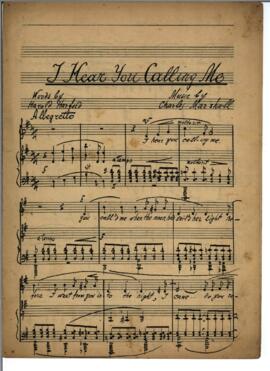 I Hear You Calling Me
Words by
Harold Harford
Music by
Charles Marshall
Allegretto
I hear you calling me.
a tempo
You call'd me when the moon had veil'd her light be-
a tempo
fore I went from you in to the night; I came